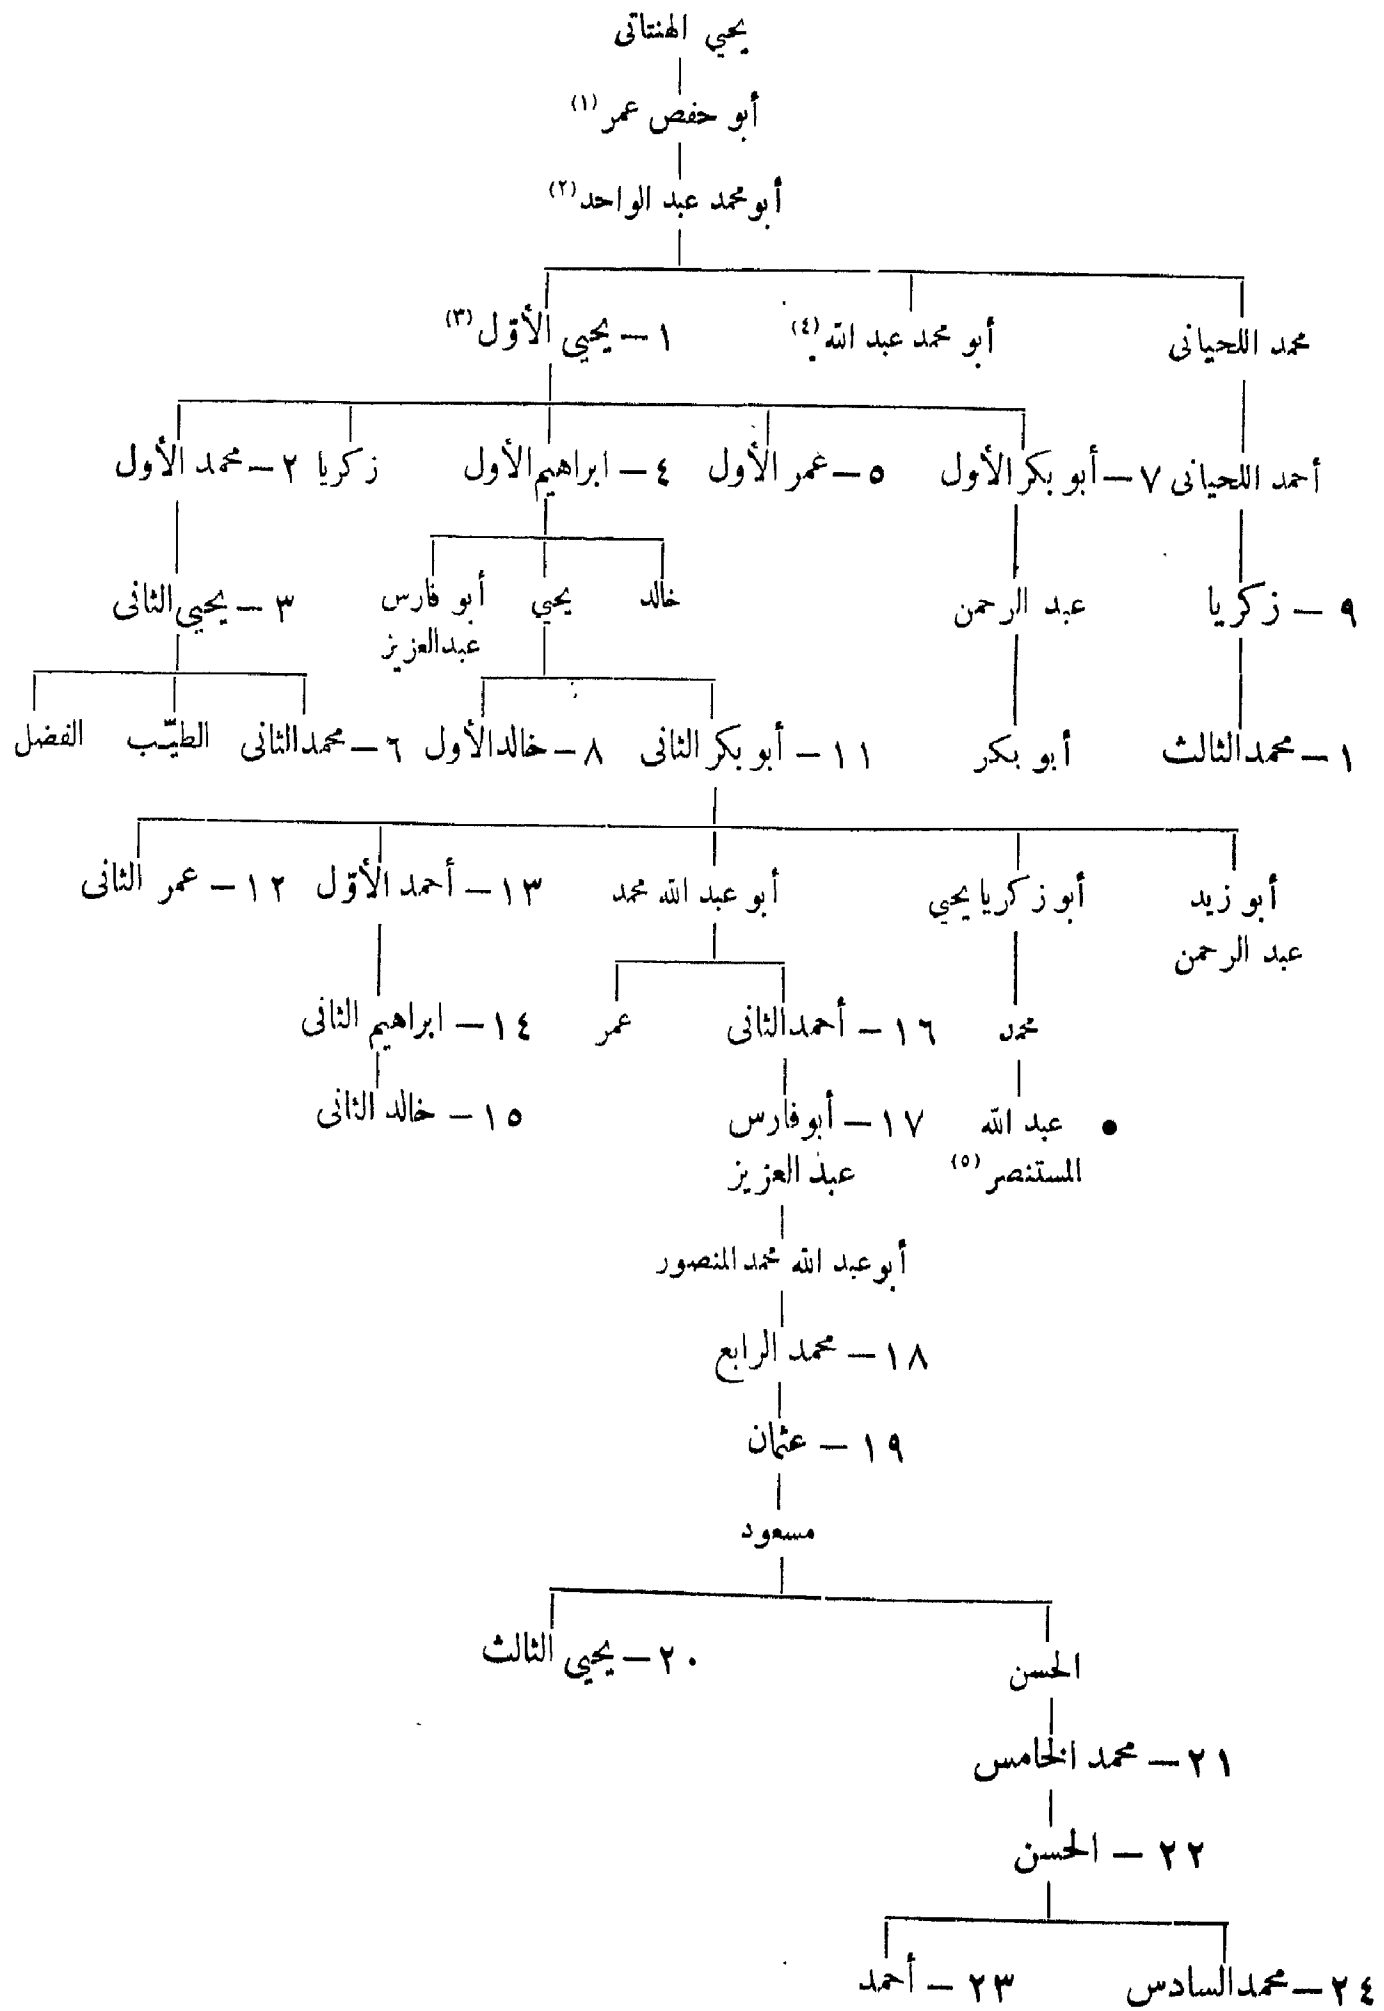 يحيي الهنتاتى
أبو حفص عمر (١)
أبو محمد عبد الواحد (٢)
محمد اللحيانى أبو محمد عبد الله (٤) ١ – يحيي الأوّل (٣)
أحمد اللحيانى ٧ – أبو بكر الأول ٥ – عمر الأول ٤ – ابراهيم الأول زكريا ٢ – محمد الأول
٩ – زكريا عبد الرحمن خالد يحيي أبو فارس ٣ – يحيي الثانى
عبد العزيز
١ – محمد الثالث أبو بكر ١١ – أبو بكر الثانى ٨ – خالد الأول ٦ – محمد الثانى الطيّب الفضل
أبو زيد أبو زكريا يحيي أبو عبد الله محمد ١٣ – أحمد الأوّل ١٢ – عمر الثانى
عبد الرحمن
محمد ١٦ – أحمد الثانى عمر ١٤ – ابراهيم الثانى
• عبد الله ١٧ – أبو فارس ١٥ – خالد الثانى
المستنصر (٥) عبد العزيز
أبو عبد الله محمد المنصور
١٨ – محمد الرابع
١٩ – عثمان
مسعود
الحسن ٢٠ – يحيي الثالث
٢١ – محمد الخامس
٢٢ – الحسن
٢٤ – محمد السادس ٢٣ – أحمد